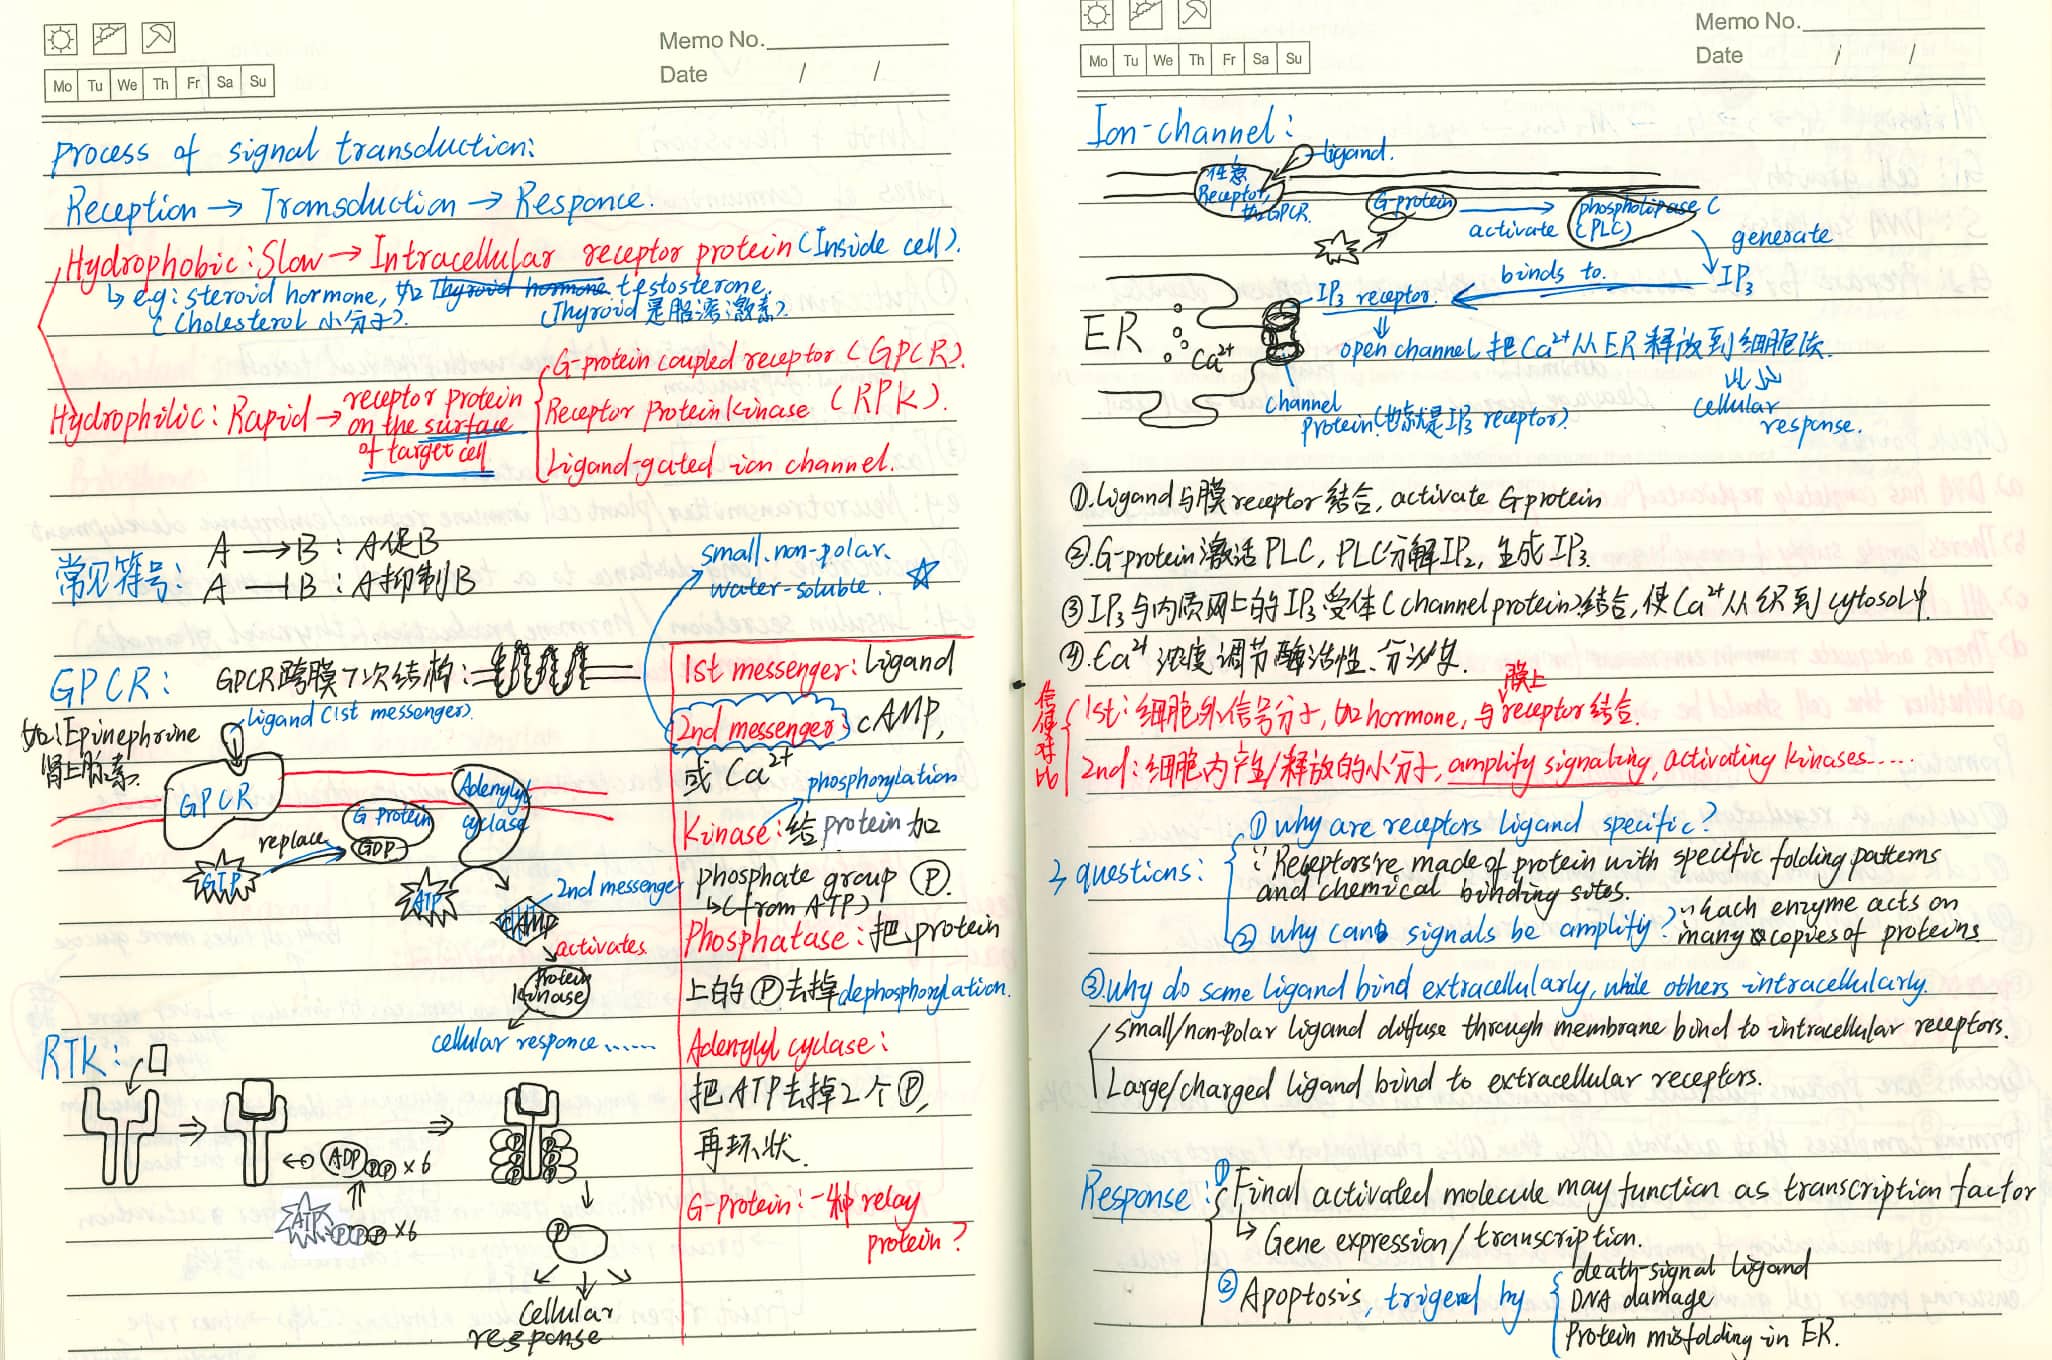 Mo Tu We Th Fr Sa Su
Memo No.
Date / /
Process of signal transduction:
Reception → Transduction → Responce.
Hydrophobic: Slow → Intracellular receptor protein (Inside cell).
↳ e.g: steroid hormone, 如 Thyroid hormone testosterone.
(Cholesterol 小分子).
(Thyroid 是胺溶激素)
Hydrophilic: Rapid → receptor protein on the surface of target cell
G-protein coupled receptor (GPCR).
Receptor Protein kinase (RPK).
Ligand-gated ion channel.
常见符号:
A → B : A促B
A ⊣ B : A抑制B
small. non-polar.
water-soluble. ☆
GPCR: GPCR跨膜7次结构:
ligand (1st messenger).
如: Epinephrine
肾上腺素.
GPCR
G Protein
GDP
Adenylyl cyclase
replace
GTP
ATP
cAMP
2nd messenger
activates
Protein kinase
cellular responce ......
RTK:
ADP P P ×6
ATP P P P ×6
P P P P P P
P
Cellular
response
1st messenger: Ligand
2nd messenger: cAMP,
或 Ca²⁺
phosphorylation
Kinase: 给 protein 加
phosphate group Ⓟ.
↳ (from ATP)
Phosphatase: 把 protein
上的 Ⓟ 去掉 dephosphorylation.
Adenylyl cyclase:
把 ATP 去掉 2 个 Ⓟ,
再环状.
G-Protein: 一种 relay
protein?
Mo Tu We Th Fr Sa Su
Memo No.
Date / /
Ion-channel:
ligand.
任意
Receptor,
如GPCR
G-protein
activate
phospholipase C
(PLC)
generate
IP₃
binds to.
IP₃ receptor.
ER
Ca²⁺
open channel 把 Ca²⁺ 从 ER 释放到细胞质.
channel
protein. (也就是 IP₃ receptor)
cellular
response.
①. Ligand 与膜 receptor 结合, activate G-protein
②. G-protein 激活 PLC, PLC 分解 IP₂, 生成 IP₃.
③ IP₃ 与内质网上的 IP₃ 受体 (channel protein) 结合, 使 Ca²⁺ 从 ER 到 cytosol 中.
④. Ca²⁺ 浓度调节酶活性、分泌等.
信使对比
膜上
1st: 细胞外信号分子, 如 hormone, 与 receptor 结合.
2nd: 细胞内产生/释放的小分子, amplify signaling, activating kinases......
3 questions:
① why are receptors ligand specific?
∵ Receptors're made of protein with specific folding patterns
and chemical binding sites.
② why can signals be amplify? ∵ Each enzyme acts on
many copies of proteins
③. why do some ligand bind extracellularly, while others intracellularly.
Small/non-polar ligand diffuse through membrane bind to intracellular receptors.
Large/charged ligand bind to extracellular receptors.
Response: ① Final activated molecule may function as transcription factor
↳ Gene expression/transcription.
② Apoptosis, trigered by
death-signal ligand
DNA damage
Protein misfolding in ER.